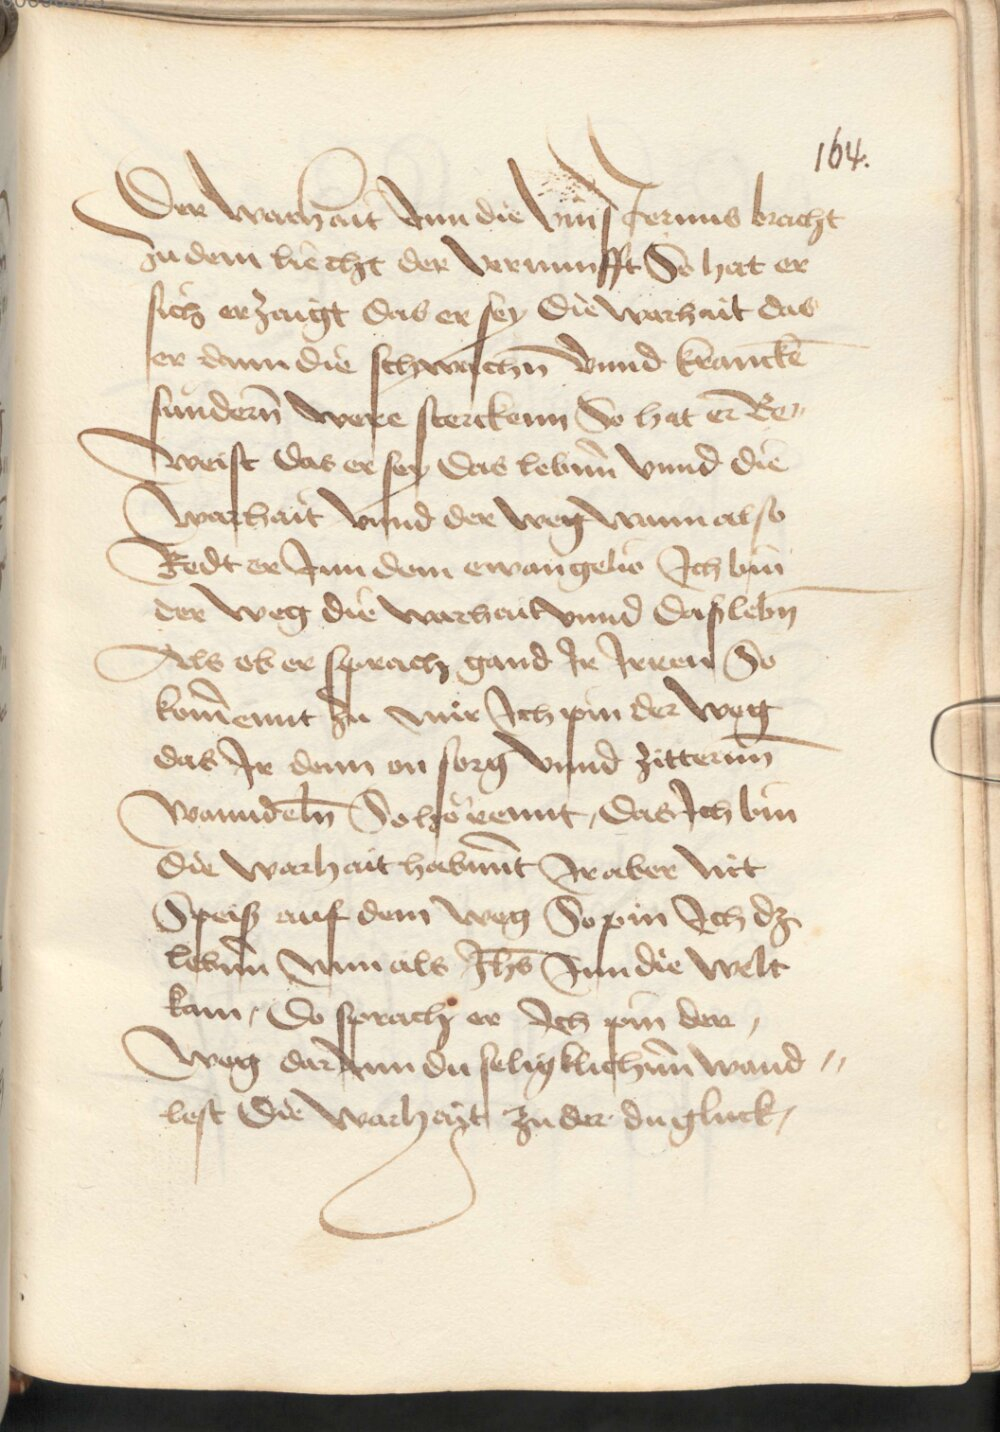 164.
Der warhait Vnn die Vinsternus bracht
zu dem liecht der Vernunfft So hat er
sich erzaigt das er sey die warhait das
er dann die schwachñ Vnnd krancken̄
sundern̄ were sterckenn So hat er Be„
weist das er sey das lebnn̄ Vnnd die
warhait Vnnd der weg wann also
Redt er Inn dem ewangelio Ich bin
der weg die warhait vnnd das lebn̄
Als ob er sprach gand Ir Irren So
kom̄ennt zu mir Ich pin der weg
das Ir denn on sorg Vnnd zitternn̄
wanndeln̄ So horennt, das Ich bin
die warhait habnnt Ir aber nit
Speiß auf dem weg So pin Ich dz
lebnn̄ wann als Ihs̄ Inn die welt
kam, Do sprach er Ich pin der,
weg dar Inn du seligklichnn̄ wand„
lest Die warhayt zu der du gluck,